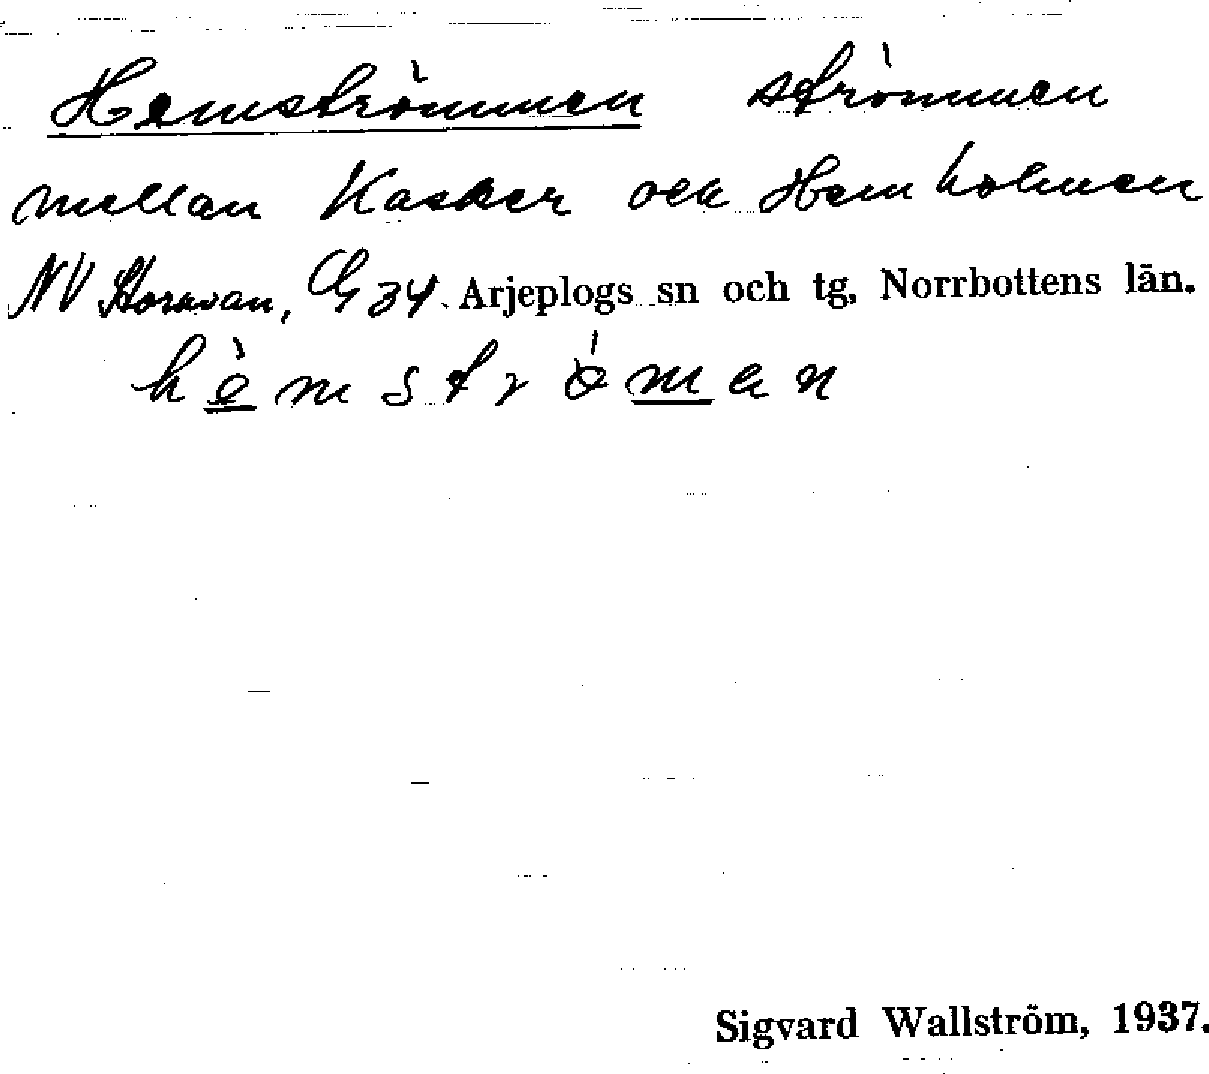 Hemströmmen strömmen
mellan Kasker och Hemholmen
NV Storavan, G 34. Arjeplogs sn och tg, Norrbottens län.
hèmströ́men
Sigvard Wallström, 1937.